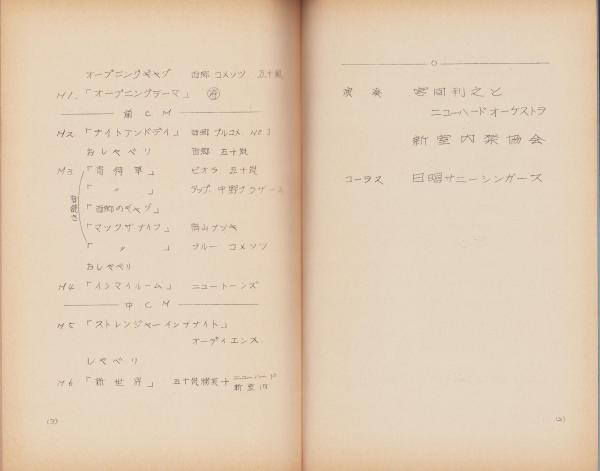 演奏 宮間利之と
ニューハードオーケストラ
新室内楽協会
コーラス 日曜サニーシンガーズ
(2)
オープニングギャグ 西郷 コメッツ 五十嵐
M1.「オープニングテーマ」
前 CM
M2 「ナイトアンドデイ」 西郷 ブルコメ. NO3
おしゃべり 西郷 五十嵐
M3 「 」 ビオラ 五十嵐
「 〃 」 タップ. 中野ブラザース
「西郷のギャグ」
「マックザナイフ」 ナツキ
「 〃 」 ブルー コメッツ
おしゃべり
M4 「インマイルーム」 ニュートーンズ
中 CM
M5 「ストレンジャーインザナイト」
オーディエンス
しゃべり
M6 「新世界」 五十嵐 + ニューハード
新室内
(3)